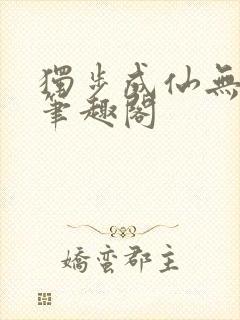 獨步成仙無
筆趣閣
嬌蠻郡主